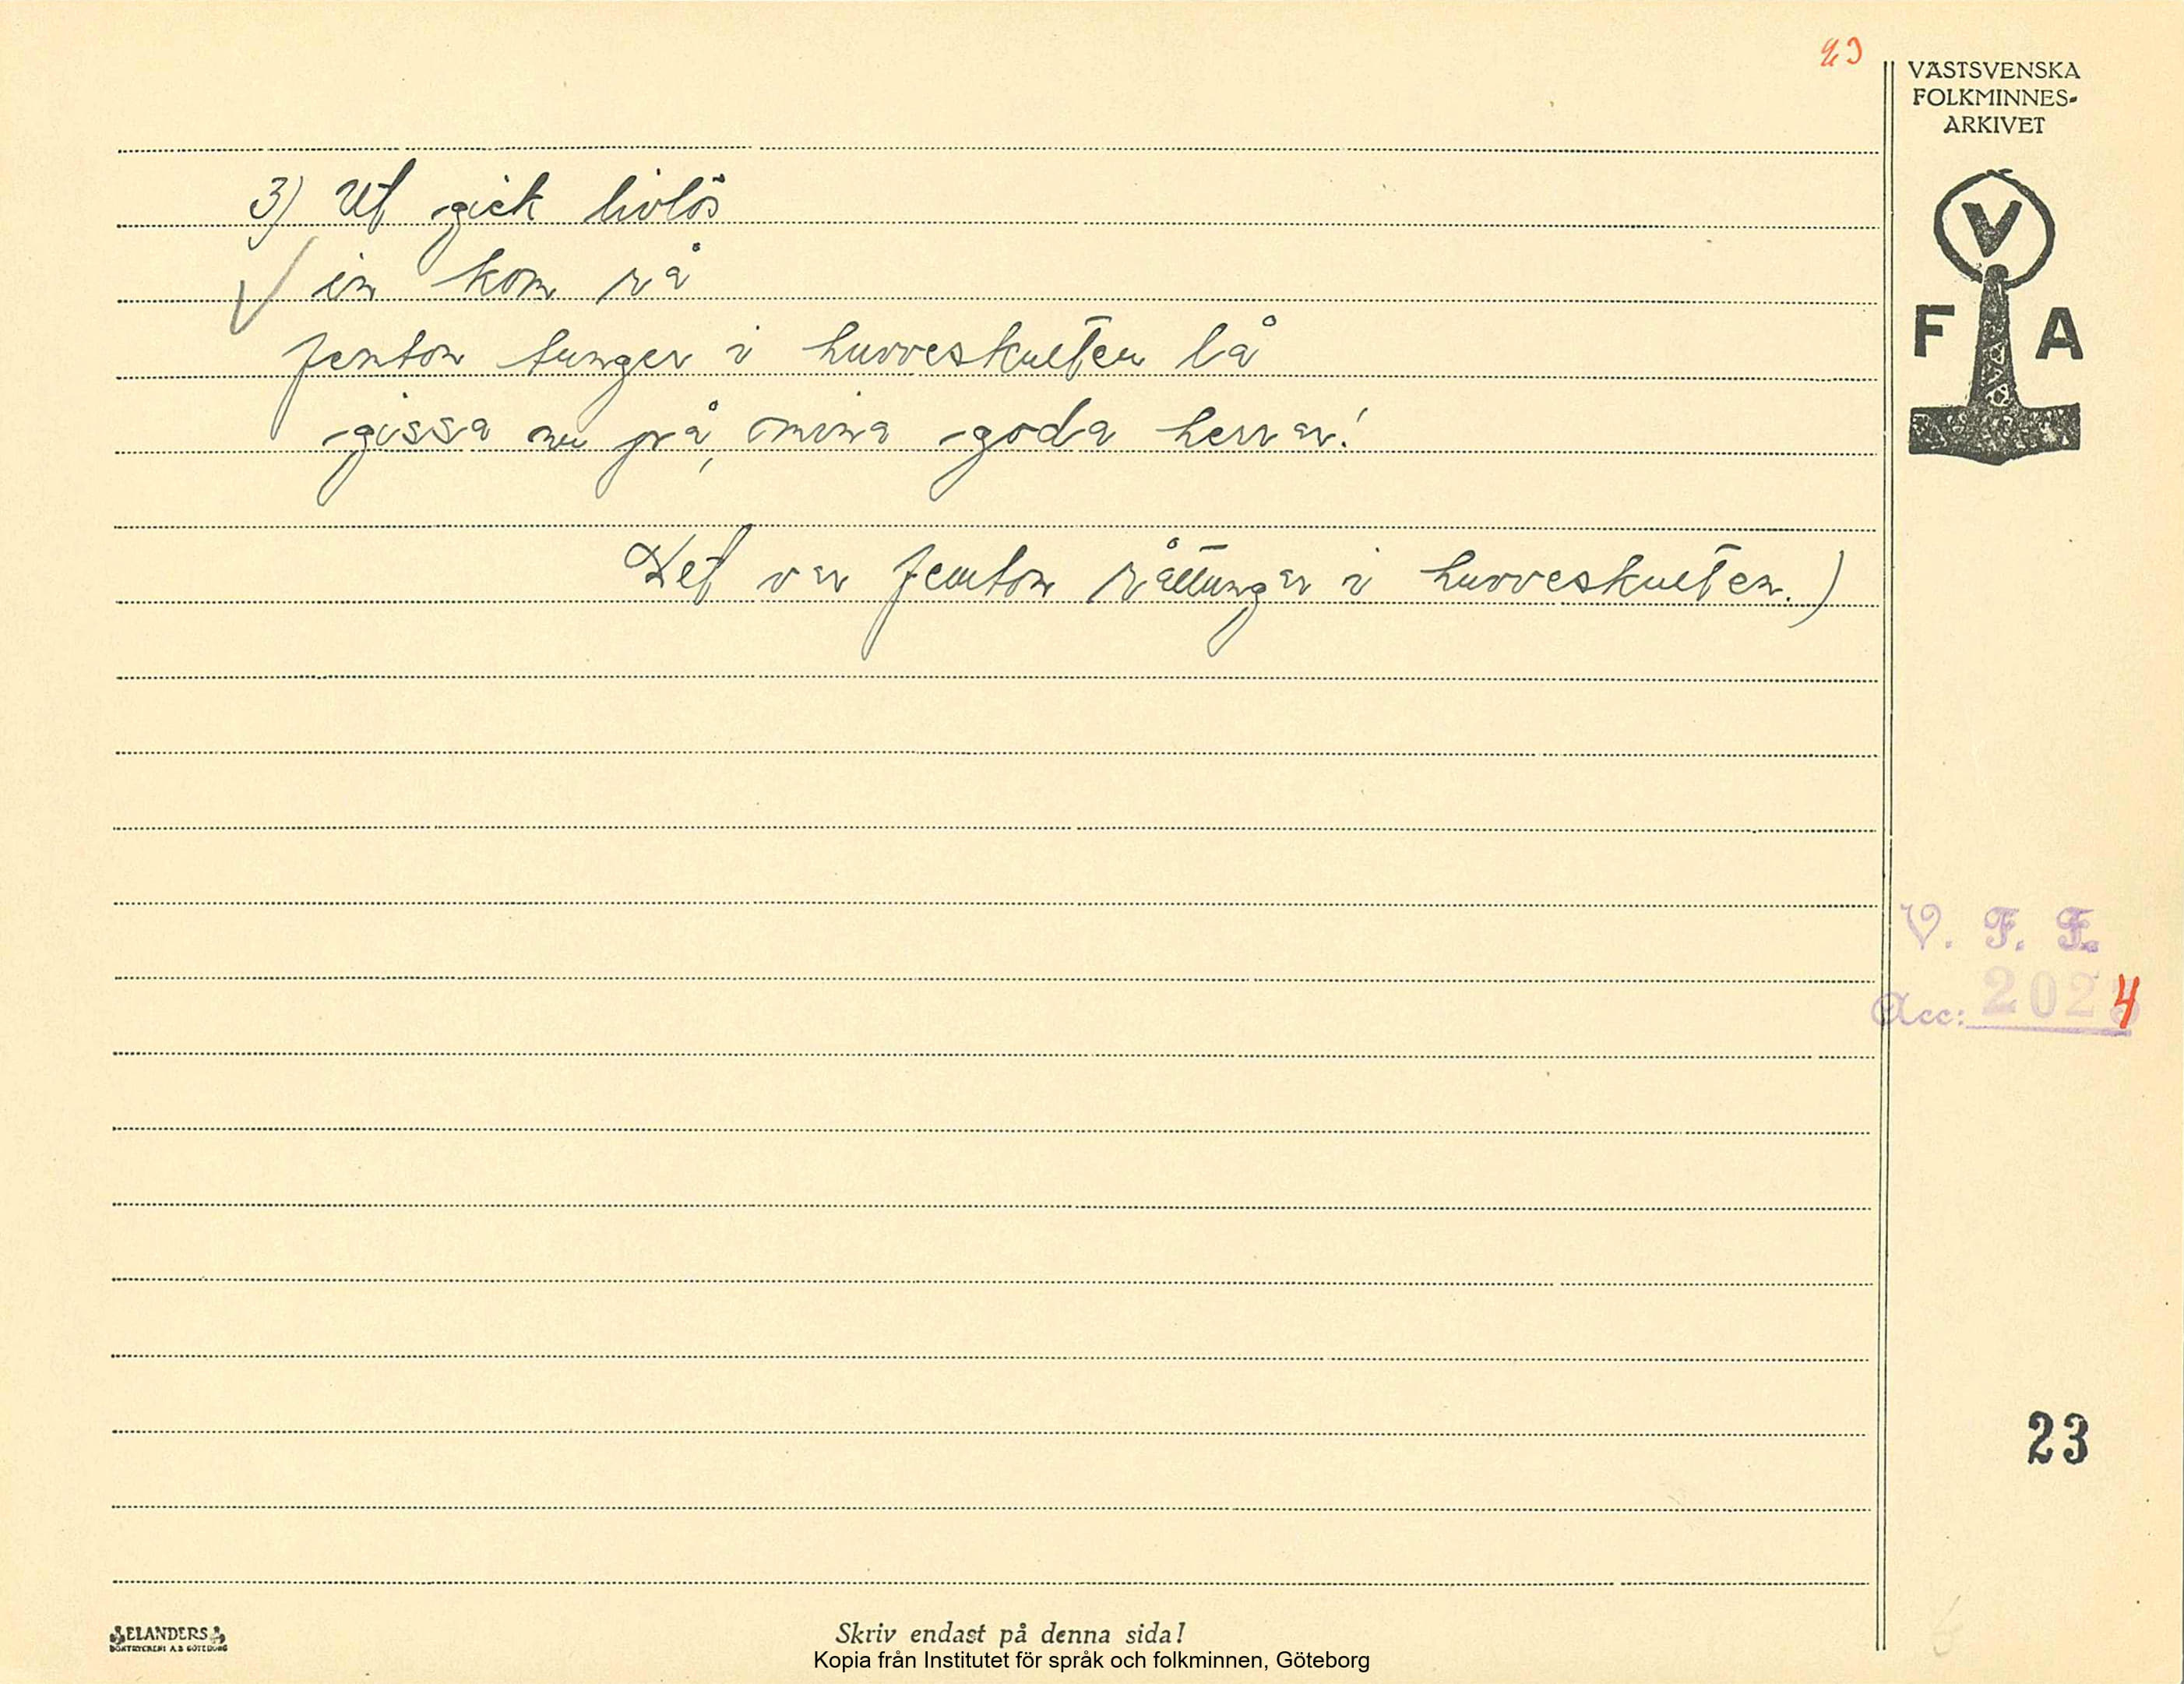 23
VÄSTSVENSKA
FOLKMINNES-
ARKIVET
3) Ut gick livlös
in kom rå
femton tunger i huvveskulten lå
gissa nu på, mina goda herrar!
Det var femton råttungar i huvveskulten.)
V
F A
V. F. F.
Acc: 2024
23
ELANDERS
BOKTRYCKERI A.B. GÖTEBORG
Skriv endast på denna sida!
Kopia från Institutet för språk och folkminnen, Göteborg